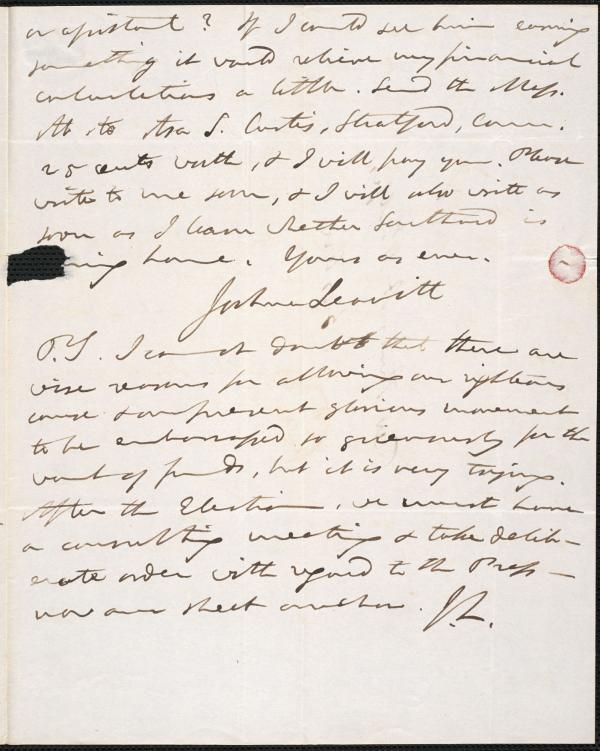 or assistant? If I could see him earning
something it would relieve my financial
calculations a little. Send the Mass.
Ab to Asa S. Curtis, Stratford, Conn.
25 cents worth, & I will pay you. Please
write to me soon, & I will also write as
soon as I learn whether Southard is
ing home. Yours as ever.
Joshua Leavitt
P.S. I cannot doubt that there are
wise reasons for allowing our righteous
cause & our present glorious movement
to be embarrassed so grievously for the
want of funds, but it is very trying.
After the Election, we must have
a consulting meeting & take delib-
erate order with regard to the Press—
now our sheet anchor. J.L.